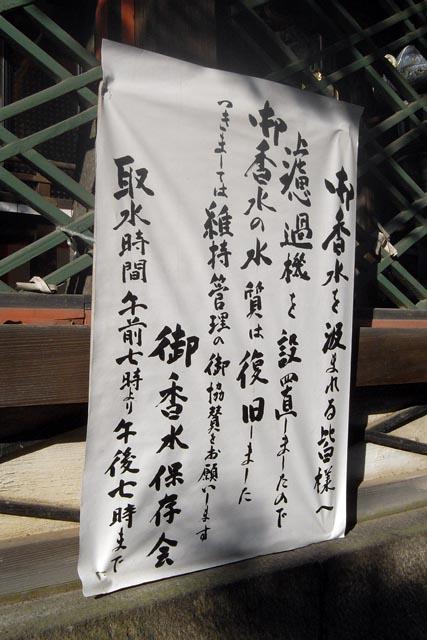 御香水を汲まれる皆様へ
濾過機を設置しましたので
御香水の水質は復旧しました
つきましては維持管理の御協賛をお願いします
御香水保存会
取水時間 午前七時より午後七時まで